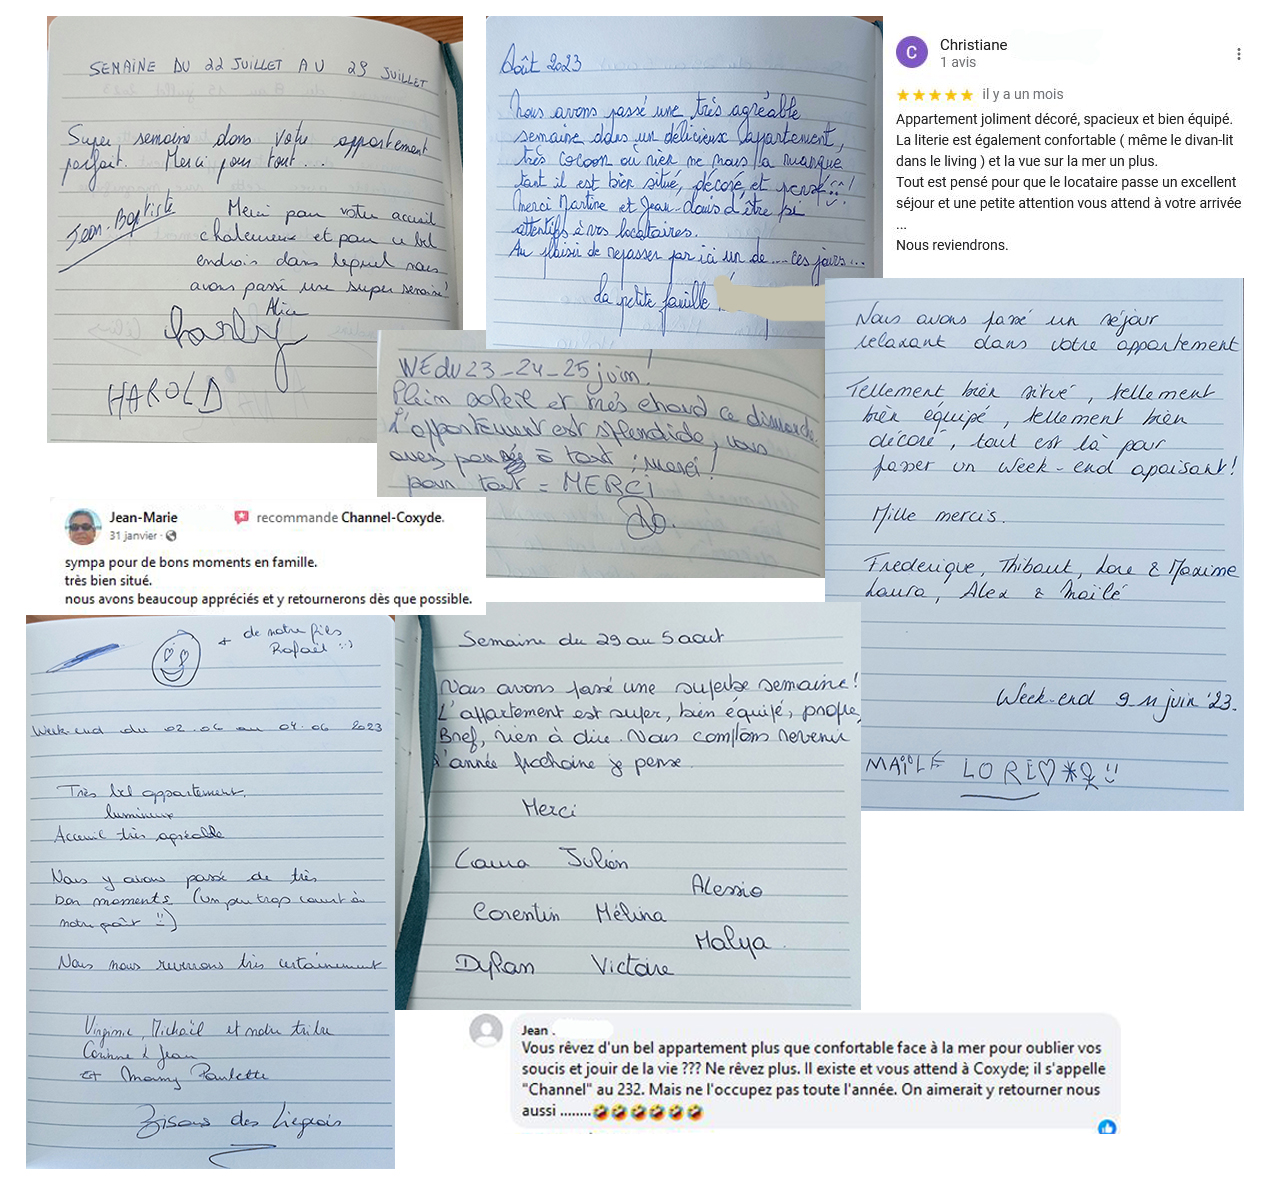 SEMAINE DU 22 JUILLET AU 29 JUILLET
Super semaine dans votre appartement
parfait. Merci pour tout...
Jean-Baptiste
Merci pour votre accueil
chaleureux et pour ce bel
endrois dans lequel nous
avons passé une super semaine!
Alice
Charly
HAROLD
Août 2023
Nous avons passé une très agréable
semaine dans un délicieux appartement,
très cocoon où rien ne nous a manqué
tant il est bien situé, décoré et pensé !
Merci Martine et Jean-Louis d'être si
attentifs à vos locataires.
Au plaisir de repasser par ici un de ... ces jours...
La petite famille
Christiane
1 avis
il y a un mois
Appartement joliment décoré, spacieux et bien équipé.
La literie est également confortable ( même le divan-lit
dans le living ) et la vue sur la mer un plus.
Tout est pensé pour que le locataire passe un excellent
séjour et une petite attention vous attend à votre arrivée
...
Nous reviendrons.
WE du 23-24-25 juin!
Plein soleil et très chaud ce dimanche.
L'appartement est splendide, vous
avez pensé à tout ; merci !
pour tout = MERCI
Do.
Nous avons passé un séjour
relaxant dans votre appartement
Tellement bien situé, tellement
bien équipé, tellement bien
décoré, tout est là pour
passer un week-end apaisant!
Mille mercis.
Frederique, Thibaut, Lore & Maxime
Laura, Alex & Maïlé
Week-end 9-11 juin '23.
MAÏLÉ LORE♡
Jean-Marie recommande Channel-Coxyde.
31 janvier ·
sympa pour de bons moments en famille.
très bien situé.
nous avons beaucoup appréciés et y retournerons dès que possible.
+ de notre fils
Rafaël :-)
Week-end du 02.06 au 04.06 2023
Très bel appartement,
lumineux
Acceuil très agréable
Nous y avons passé de très
bon moments (un peu trop court à
notre goût !!)
Nous nous reverrons très certainement
Virginie, Mickaël et notre tribu
Corinne & Jean
et Mamy Paulette
Bisous des Liégeois
Semaine du 29 au 5 aout
Nous avons passé une superbe semaine!
L'appartement est super, bien équipé, propre,
Bref, rien à dire. Nous comptons revenir
l'année prochaine je pense.
Merci
Laura Julien
Alessio
Corentin Mélina
Malya
Dylan Victoire
Jean .
Vous rêvez d'un bel appartement plus que confortable face à la mer pour oublier vos
soucis et jouir de la vie ??? Ne rêvez plus. Il existe et vous attend à Coxyde; il s'appelle
"Channel" au 232. Mais ne l'occupez pas toute l'année. On aimerait y retourner nous
aussi ........🤣🤣🤣🤣🤣🤣